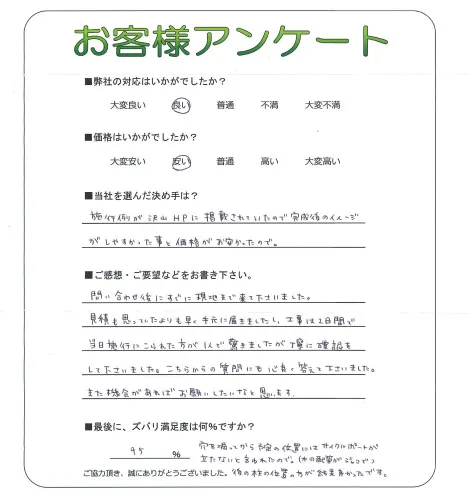 お客様アンケート
■弊社の対応はいかがでしたか？
大変良い 良い 普通 不満 大変不満
■価格はいかがでしたか？
大変安い 安い 普通 高い 大変高い
■当社を選んだ決め手は？
施行例が沢山HPに掲載されていたので完成後のイメージ
がしやすかった事と価格がお安かったので。
■ご感想・ご要望などをお書き下さい。
問い合わせ後にすぐに現地まで来て下さいました。
見積も思っていたよりも早く手元に届きましたし、工事は2日間で
当日施行にこられた方が1人で驚きましたが丁寧に確認を
して下さいました。こちらからの質問にも心良く答えて下さいました。
また機会があればお願いしたいなと思います。
■最後に、ズバリ満足度は何％ですか？
95 ％
穴を掘ってから予定の位置にはサイクルポートが
立たないと言われたので。(水の配管がジャマで)
ご協力頂き、誠にありがとうございました。
後の柱の位置の方が結果良かったです。